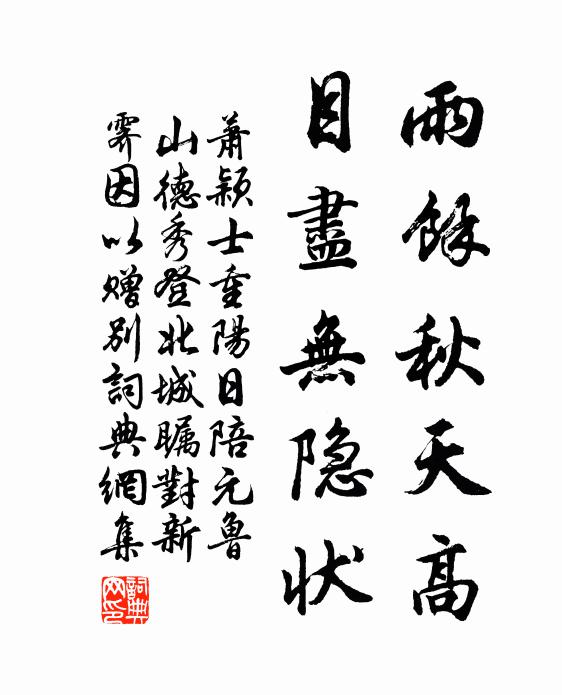 雨餘秋天高
目盡無隐狀
萧颖士重陽日陪元鲁
山德秀登北城矚對新
霁因以赠别詞典網集
詞典
网印